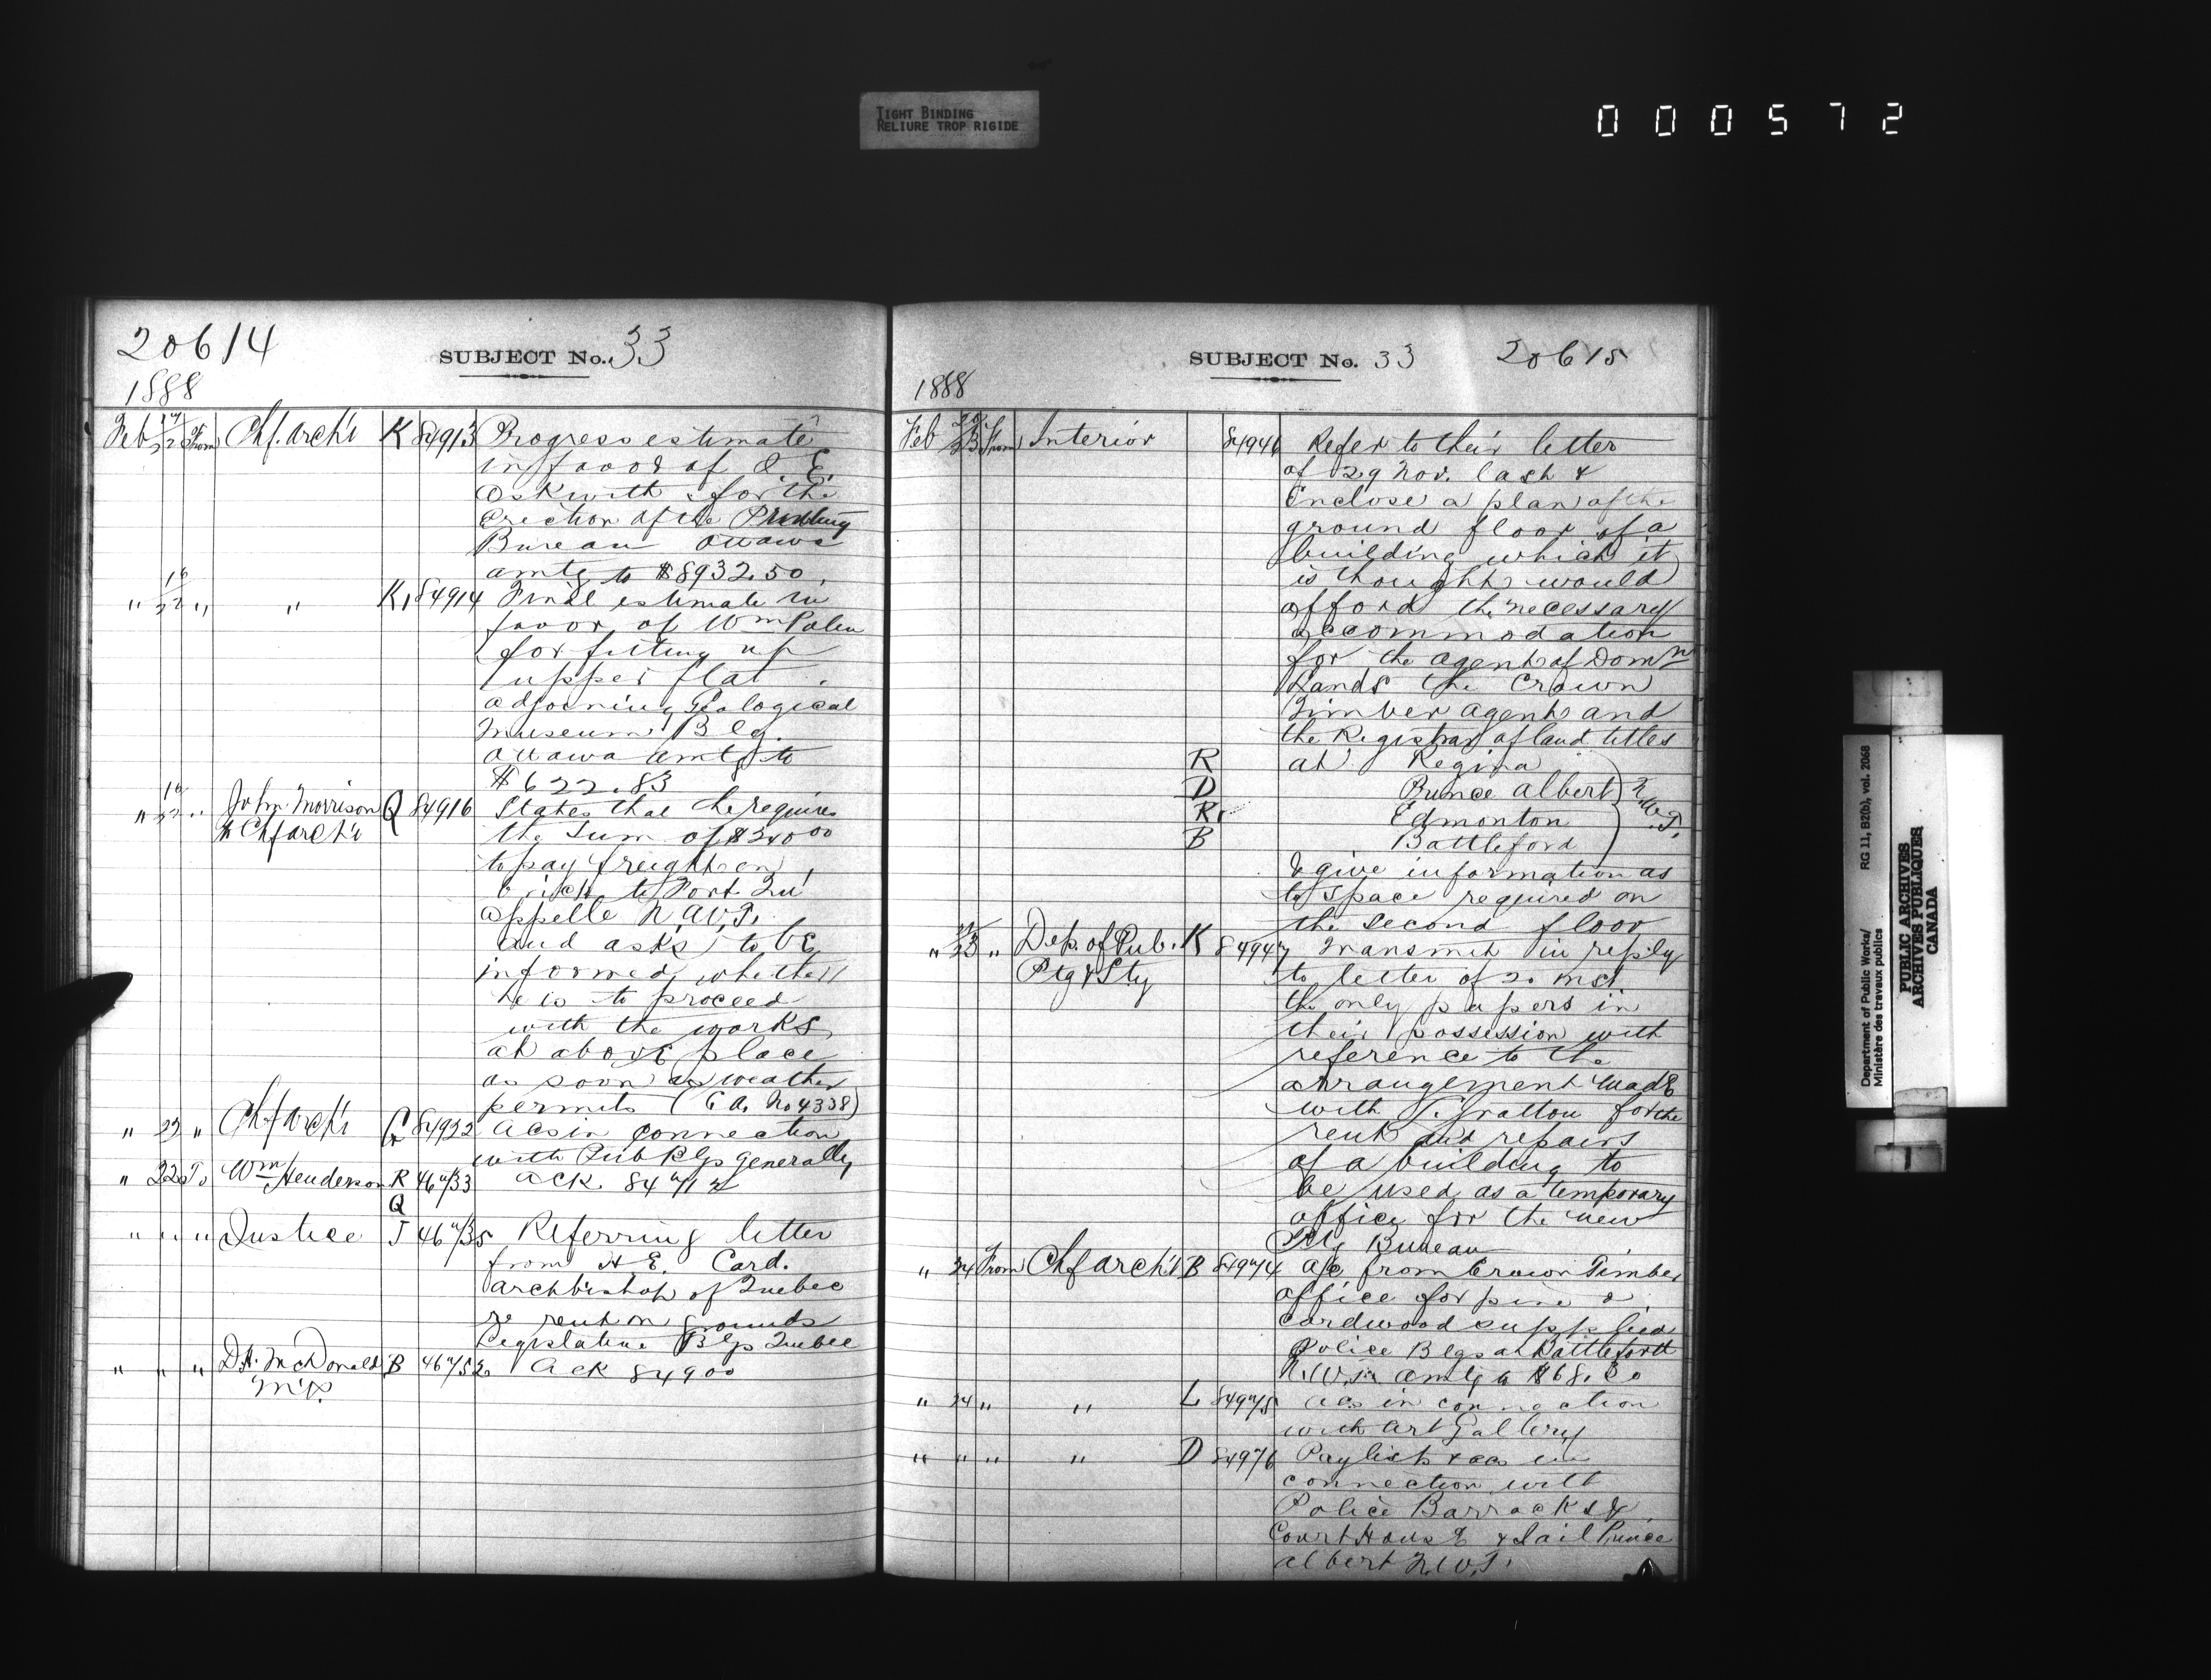 TIGHT BINDING
RELIURE TROP RIGIDE
000572
20614
SUBJECT No. 33
1888
Feb 17/22 From Chf. Arch't K 84913 Progress estimate
in favor of O. E.
Askwith for the
erection of the Printing
Bureau Ottawa
amtg to $8932.50.
" 18/22 " " K 84914 Final estimate in
favor of Wm Palen
for fitting up
upper flat
adjoining Geological
Museum Blg.
Ottawa amtg to
$622.83
" 18/22 " John Morrison Q 84916 States that he requires
to Chf Arch't the sum of $24000
to pay freight on
brick to Fort Qu'
appelle N.W.T.
and asks to be
informed whether
he is to proceed
with the works
at above place
as soon as weather
permits (C.A. No 4338)
" 22 " Chf Arch't 84922 Acs in connection
with Pub Blgs generally
" 22 To Wm Henderson R 46733 Ack. 84712
Q
" " " Justice J 46735 Referring letter
from H. E. Card.
Archbishop of Quebec
re rent on grounds
Legislative Blgs Quebec
" " " D. H. McDonald B 46752 Ack 84900
M.P.
SUBJECT No. 33 20615
1888
Feb 23 From Interior 84946 Refer to their letter
of 29 Nov. last &
enclose a plan of the
ground floor of a
building which it
is thought would
afford the necessary
accommodation
for the agent of Domn
Lands the Crown
Timber agent and
the Registrar of land titles
R at Regina
D Prince Albert N.W.T.
R. Edmonton
B Battleford
& give information as
to space required on
the second floor
" 23 " Dep. of Pub. K 84947 Transmit in reply
Ptg & Sty to letter of 20 inst.
the only papers in
their possession with
reference to the
arrangement made
with Gratton for the
rent and repairs
of a building to
be used as a temporary
office for the new
Ptg Bureau
" 24 From Chf Arch't B 84974 a/c from Crown Timber
office for pine &
cordwood supplied
Police Blgs at Battleford
N.W.T. amtg to $68.
" 24 " " L 84975 acs in connection
with Art Gallery
" " " " D 84976 Paylist & acs in
connection with
Police Barracks &
Court House & Jail Prince
Albert N.W.T.
Department of Public Works/ RG 11, B2(b), vol. 2068
Ministère des travaux publics
PUBLIC ARCHIVES
ARCHIVES PUBLIQUES
CANADA